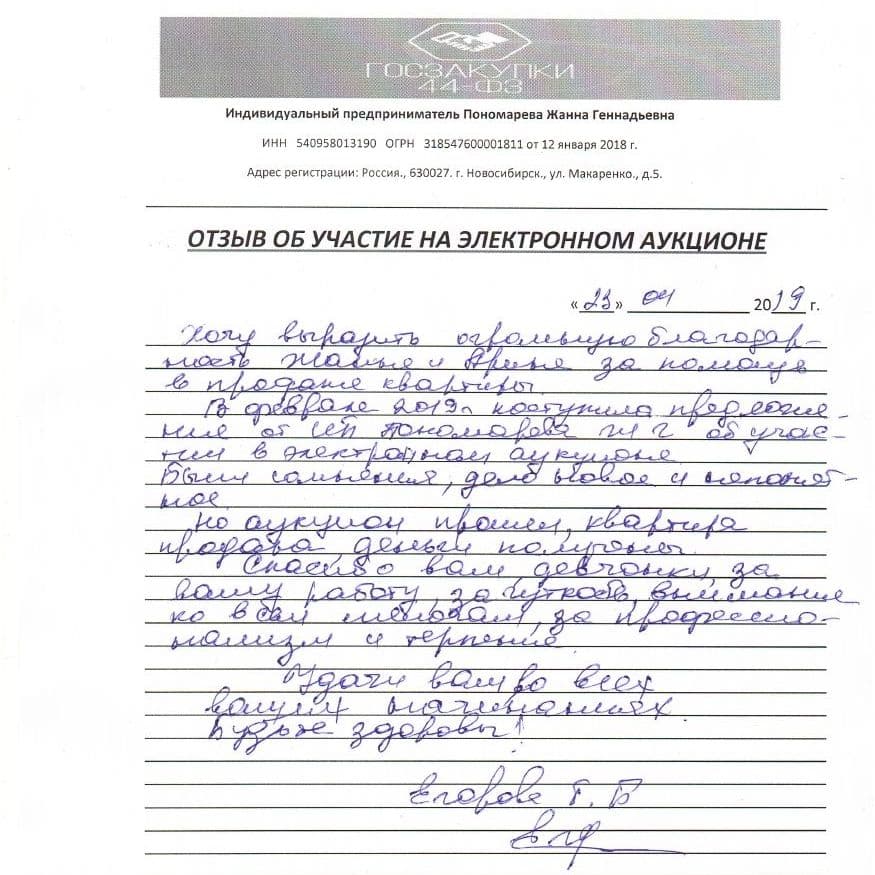 ГОСЗАКУПКИ
44-ФЗ
Индивидуальный предприниматель Пономарева Жанна Геннадьевна
ИНН 540958013190 ОГРН 318547600001811 от 12 января 2018 г.
Адрес регистрации: Россия., 630027. г. Новосибирск., ул. Макаренко., д.5.
ОТЗЫВ ОБ УЧАСТИЕ НА ЭЛЕКТРОННОМ АУКЦИОНЕ
«23» 04 2019 г.
Хочу выразить огромную благодар-
ность Жанне и Арине за помощь
в продаже квартиры.
В феврале 2019г поступило предложе-
ние от ИП Пономарева Ж Г об учас-
тии в электронном аукционе.
Были сомнения, дело новое и непонят-
ное.
Но аукцион прошел, квартира
продана, деньги получены.
Спасибо вам, девчонки, за
вашу работу, за чуткость, внимание
ко всем мелочам, за профессио-
нализм и терпение.
Удачи вам во всех
ваших начинаниях.
Будьте здоровы!
Егорова Т. Б